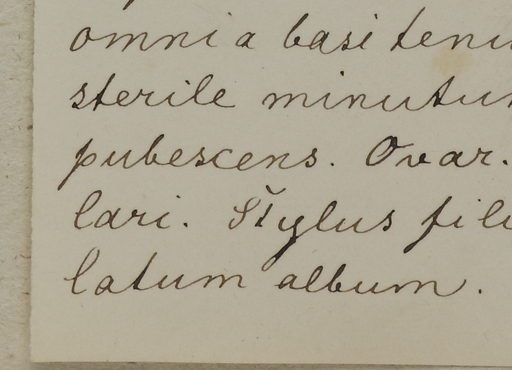 omnia basi tenu
sterile minutu
pubescens. Ovar.
lari. Stylus fili
latum album.